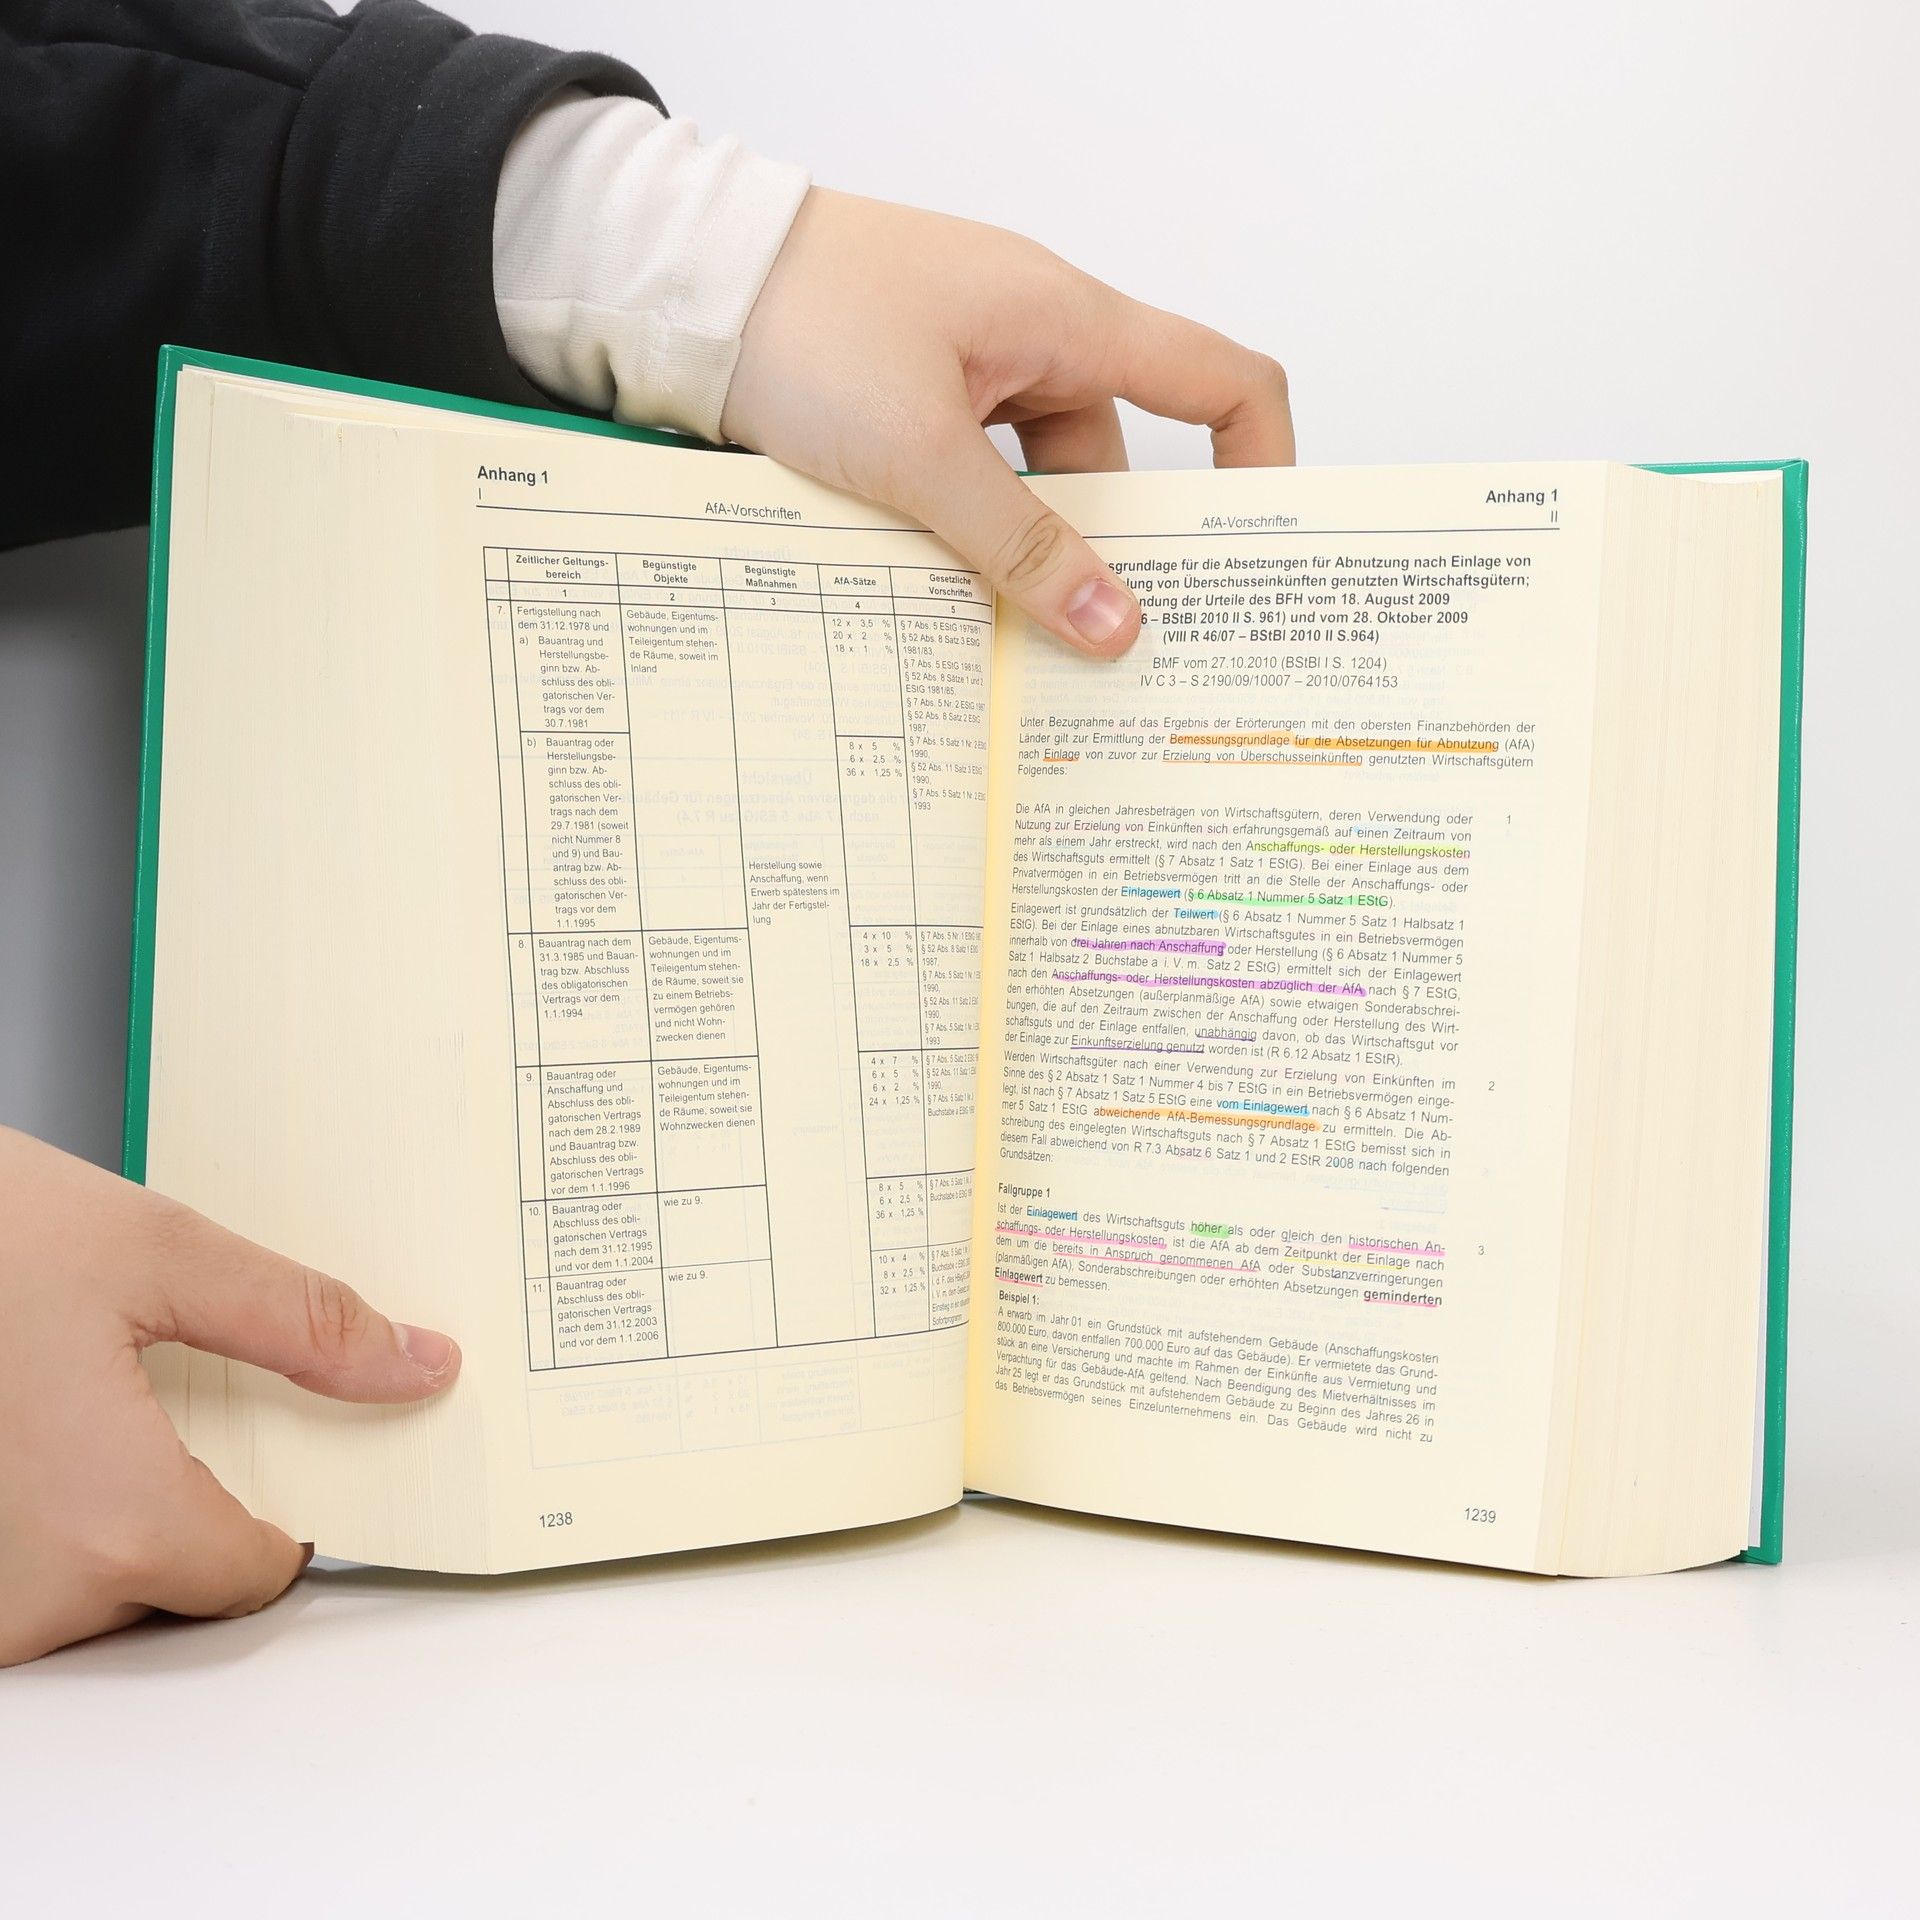 Anhang 1
I
AfA-Vorschriften
Zeitlicher Geltungs-
bereich
Begünstigte
Objekte
Begünstigte
Maßnahmen
AfA-Sätze
Gesetzliche
Vorschriften
1
2
3
4
5
7.
Fertigstellung nach
dem 31.12.1978 und
a) Bauantrag und
Herstellungsbe-
ginn bzw. Ab-
schluss des obli-
gatorischen Ver-
trags vor dem
30.7.1981
Gebäude, Eigentums-
wohnungen und im
Teileigentum stehen-
de Räume, soweit im
Inland
12 x 3,5 %
20 x 2 %
18 x 1 %
§ 7 Abs. 5 EStG 1979/81,
§ 52 Abs. 8 Satz 3 EStG
1981/83,
§ 7 Abs. 5 EStG 1981/83,
§ 52 Abs. 8 Sätze 1 und 2
EStG 1981/85,
§ 7 Abs. 5 Nr. 2 EStG 1987
§ 52 Abs. 8 Satz 2 EStG
1987,
b) Bauantrag oder
Herstellungsbe-
ginn bzw. Ab-
schluss des obli-
gatorischen Ver-
trags nach dem
29.7.1981 (soweit
nicht Nummer 8
und 9) und Bau-
antrag bzw. Ab-
schluss des obli-
gatorischen Ver-
trags vor dem
1.1.1995
8 x 5 %
6 x 2,5 %
36 x 1,25 %
§ 7 Abs. 5 Satz 1 Nr. 2
1990,
§ 52 Abs. 11 Satz 3
1990,
§ 7 Abs. 5 Satz 1 Nr. 2
1993
Herstellung sowie
Anschaffung, wenn
Erwerb spätestens im
Jahr der Fertigstel-
lung
8.
Bauantrag nach dem
31.3.1985 und Bauan-
trag bzw. Abschluss
des obligatorischen
Vertrags vor dem
1.1.1994
Gebäude, Eigentums-
wohnungen und im
Teileigentum stehen-
de Räume, soweit sie
zu einem Betriebs-
vermögen gehören
und nicht Wohn-
zwecken dienen
4 x 10 %
3 x 5 %
18 x 2,5 %
§ 7 Abs. 5 Nr. 1
§ 52 Abs. 8 Satz 1
1987,
§ 7 Abs. 5 Satz 1 Nr. 1
1990,
§ 52 Abs. 11 Satz
1990,
§ 7 Abs. 5 Satz 1 Nr.
1993
9.
Bauantrag oder
Anschaffung und
Abschluss des obli-
gatorischen Vertrags
nach dem 28.2.1989
und Bauantrag bzw.
Abschluss des obli-
gatorischen Vertrags
vor dem 1.1.1996
Gebäude, Eigentums-
wohnungen und im
Teileigentum stehen-
de Räume, soweit sie
Wohnzwecken dienen
4 x 7 %
6 x 5 %
6 x 2 %
24 x 1,25 %
§ 7 Abs. 5 Satz 2
§ 52 Abs. 11 Satz
1990,
§ 7 Abs. 5 Satz 1
Buchstabe a
10.
Bauantrag oder
Abschluss des obli-
gatorischen Vertrags
nach dem 31.12.1995
und vor dem 1.1.2004
wie zu 9.
8 x 5 %
6 x 2,5 %
36 x 1,25 %
§ 7 Abs. 5 Satz 1
Buchstabe b
11.
Bauantrag oder
Abschluss des obli-
gatorischen Vertrags
nach dem 31.12.2003
und vor dem 1.1.2006
wie zu 9.
10 x 4 %
8 x 2,5 %
32 x 1,25 %
§ 7 Abs. 5 Satz 1
Buchstabe
i. d. F. des
i. V. m. dem
Einstieg in ein
Sofortprogramm
1238
Anhang 1
II
AfA-Vorschriften
sgrundlage für die Absetzungen für Abnutzung nach Einlage von
lung von Überschusseinkünften genutzten Wirtschaftsgütern;
ndung der Urteile des BFH vom 18. August 2009
6 – BStBl 2010 II S. 961) und vom 28. Oktober 2009
(VIII R 46/07 – BStBl 2010 II S.964)
BMF vom 27.10.2010 (BStBl I S. 1204)
IV C 3 – S 2190/09/10007 – 2010/0764153
Unter Bezugnahme auf das Ergebnis der Erörterungen mit den obersten Finanzbehörden der
Länder gilt zur Ermittlung der Bemessungsgrundlage für die Absetzungen für Abnutzung (AfA)
nach Einlage von zuvor zur Erzielung von Überschusseinkünften genutzten Wirtschaftsgütern
Folgendes:
Die AfA in gleichen Jahresbeträgen von Wirtschaftsgütern, deren Verwendung oder 1
Nutzung zur Erzielung von Einkünften sich erfahrungsgemäß auf einen Zeitraum von
mehr als einem Jahr erstreckt, wird nach den Anschaffungs- oder Herstellungskosten
des Wirtschaftsguts ermittelt (§ 7 Absatz 1 Satz 1 EStG). Bei einer Einlage aus dem
Privatvermögen in ein Betriebsvermögen tritt an die Stelle der Anschaffungs- oder
Herstellungskosten der Einlagewert (§ 6 Absatz 1 Nummer 5 Satz 1 EStG).
Einlagewert ist grundsätzlich der Teilwert (§ 6 Absatz 1 Nummer 5 Satz 1 Halbsatz 1
EStG). Bei der Einlage eines abnutzbaren Wirtschaftsgutes in ein Betriebsvermögen
innerhalb von drei Jahren nach Anschaffung oder Herstellung (§ 6 Absatz 1 Nummer 5
Satz 1 Halbsatz 2 Buchstabe a i. V. m. Satz 2 EStG) ermittelt sich der Einlagewert
nach den Anschaffungs- oder Herstellungskosten abzüglich der AfA nach § 7 EStG,
den erhöhten Absetzungen (außerplanmäßige AfA) sowie etwaigen Sonderabschrei-
bungen, die auf den Zeitraum zwischen der Anschaffung oder Herstellung des Wirt-
schaftsguts und der Einlage entfallen, unabhängig davon, ob das Wirtschaftsgut vor
der Einlage zur Einkunftserzielung genutzt worden ist (R 6.12 Absatz 1 EStR).
Werden Wirtschaftsgüter nach einer Verwendung zur Erzielung von Einkünften im 2
Sinne des § 2 Absatz 1 Satz 1 Nummer 4 bis 7 EStG in ein Betriebsvermögen einge-
legt, ist nach § 7 Absatz 1 Satz 5 EStG eine vom Einlagewert nach § 6 Absatz 1 Num-
mer 5 Satz 1 EStG abweichende AfA-Bemessungsgrundlage zu ermitteln. Die Ab-
schreibung des eingelegten Wirtschaftsguts nach § 7 Absatz 1 EStG bemisst sich in
diesem Fall abweichend von R 7.3 Absatz 6 Satz 1 und 2 EStR 2008 nach folgenden
Grundsätzen:
Fallgruppe 1
Ist der Einlagewert des Wirtschaftsguts höher als oder gleich den historischen An- 3
schaffungs- oder Herstellungskosten, ist die AfA ab dem Zeitpunkt der Einlage nach
dem um die bereits in Anspruch genommenen AfA oder Substanzverringerungen
(planmäßigen AfA), Sonderabschreibungen oder erhöhten Absetzungen geminderten
Einlagewert zu bemessen.
Beispiel 1:
A erwarb im Jahr 01 ein Grundstück mit aufstehendem Gebäude (Anschaffungskosten
800.000 Euro, davon entfallen 700.000 Euro auf das Gebäude). Er vermietete das Grund-
stück an eine Versicherung und machte im Rahmen der Einkünfte aus Vermietung und
Verpachtung für das Gebäude-AfA geltend. Nach Beendigung des Mietverhältnisses im
Jahr 25 legt er das Grundstück mit aufstehendem Gebäude zu Beginn des Jahres 26 in
das Betriebsvermögen seines Einzelunternehmens ein. Das Gebäude wird nicht zu
1239